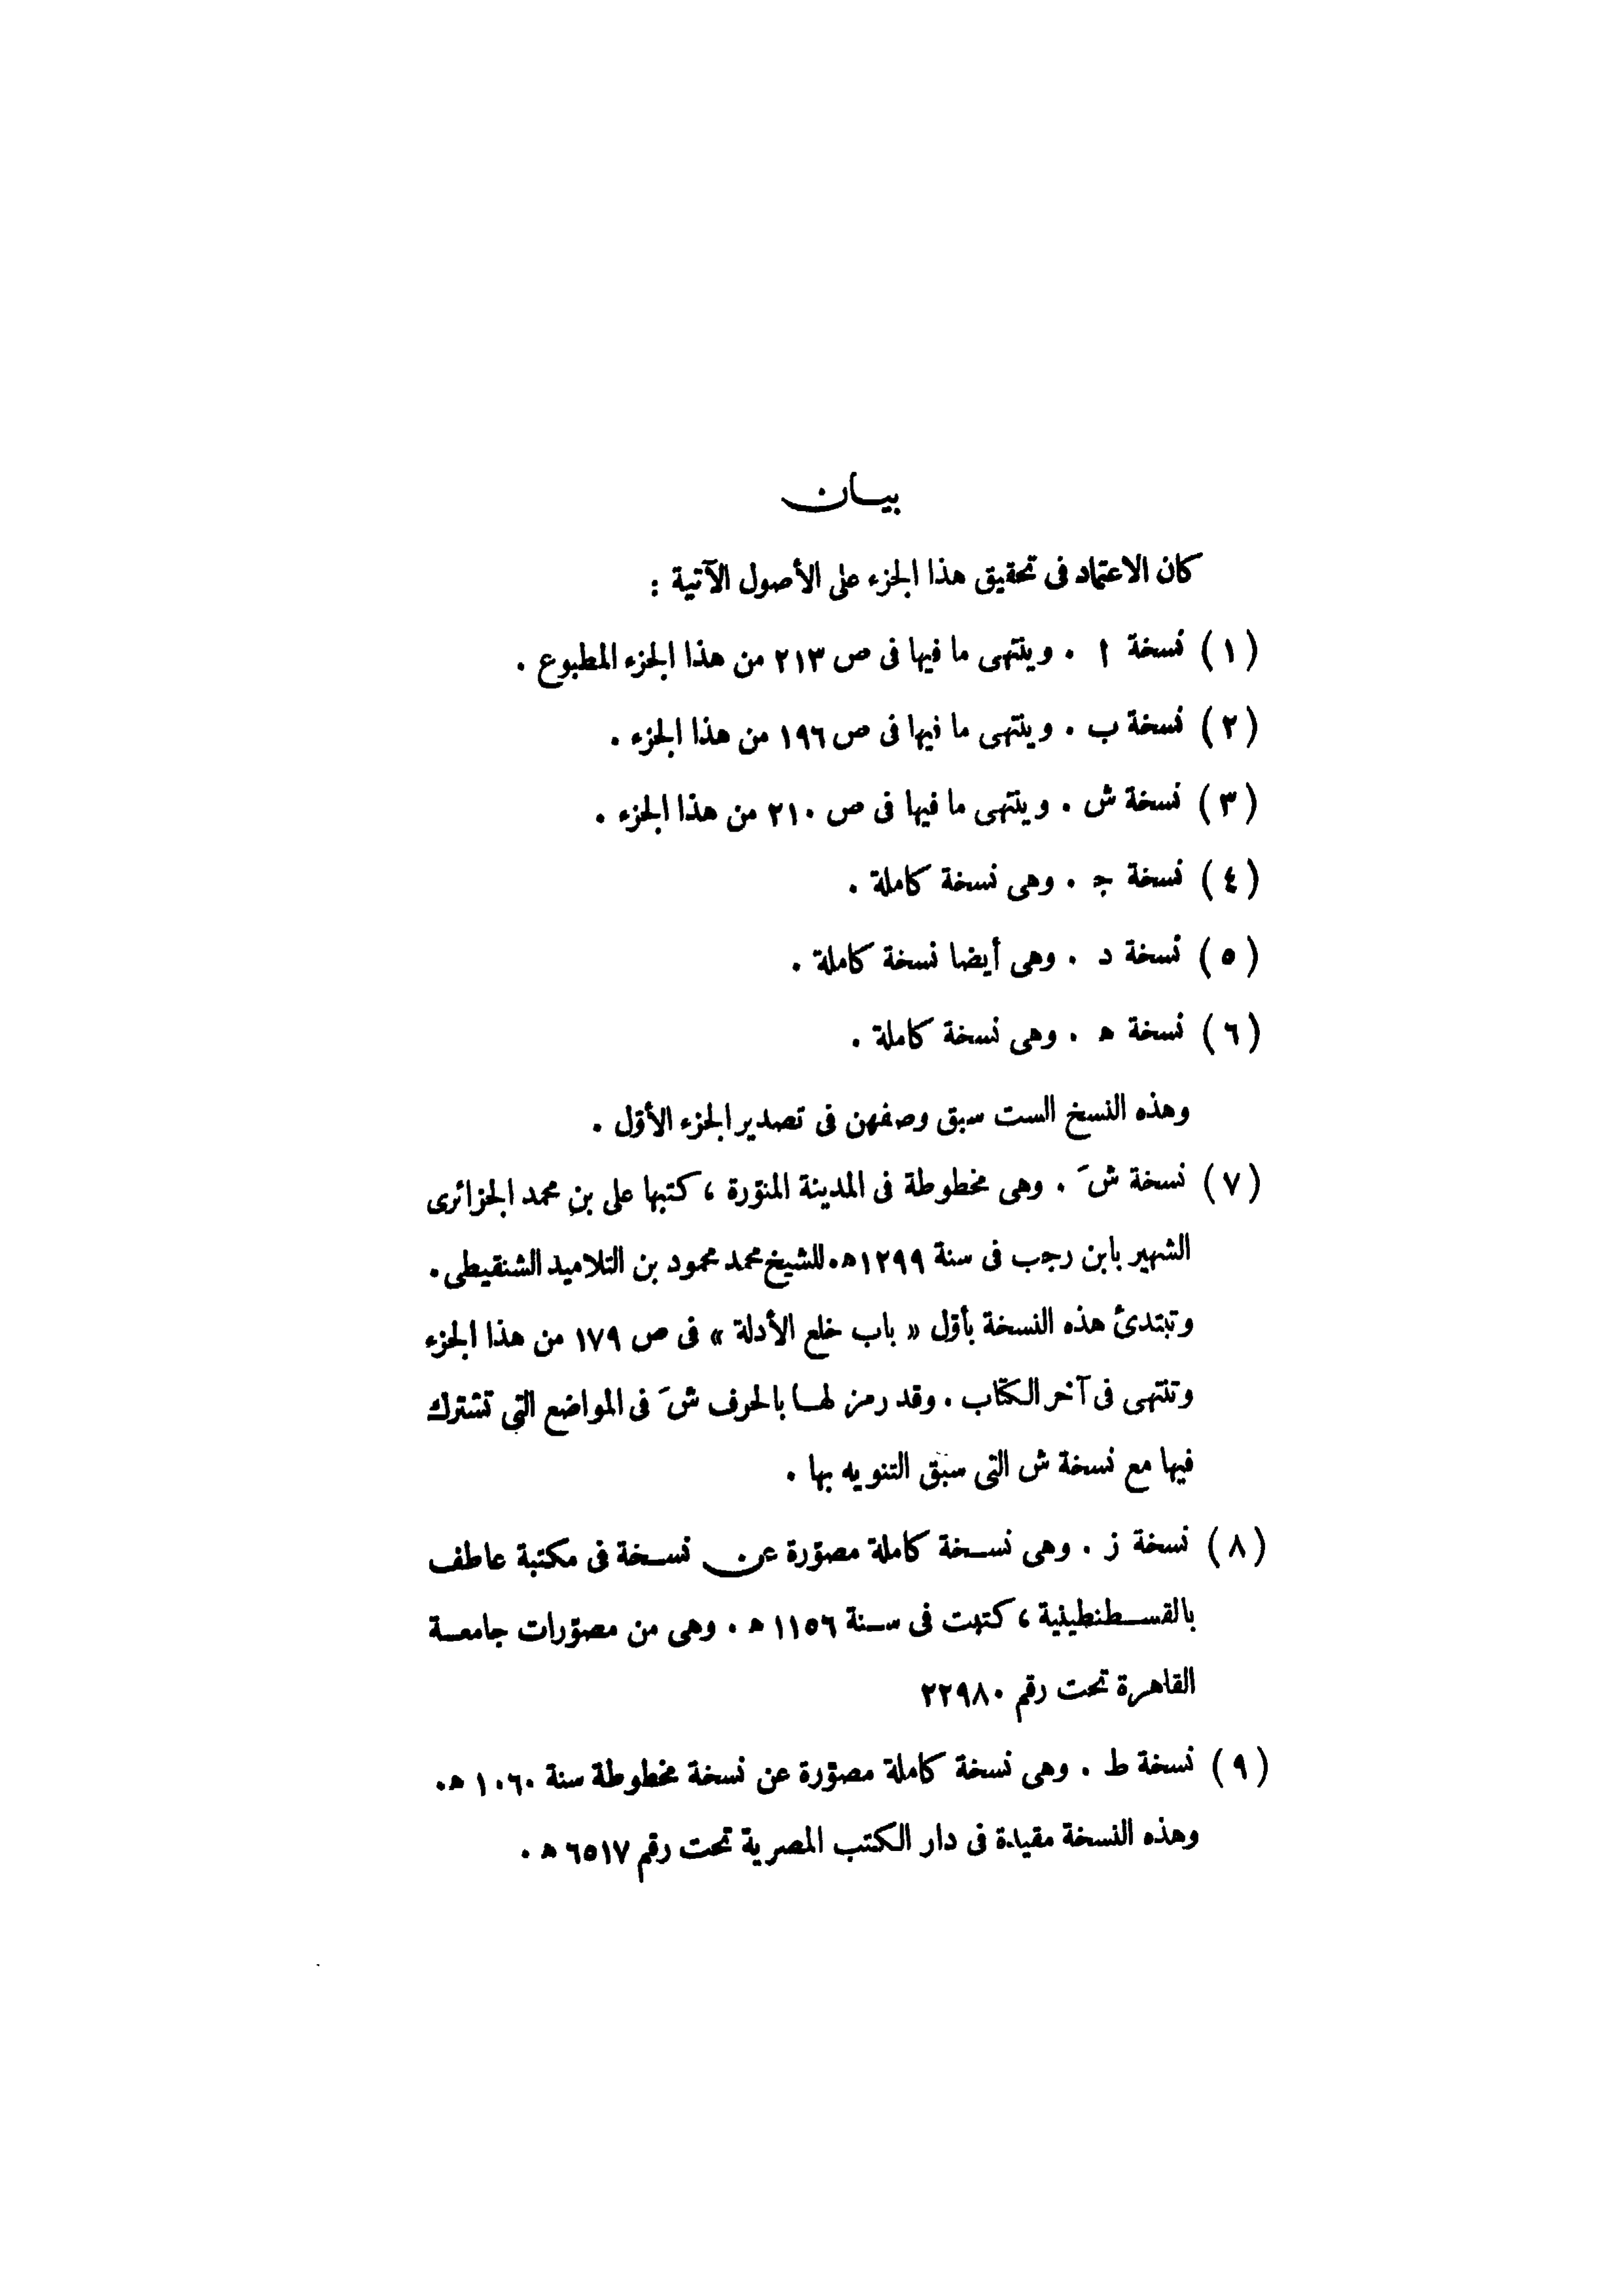 بيـــان
كان الاعتماد فى تحقيق هذا الجزء على الأصول الآتية :
(١) نسخة ا . وينتهى ما فيها فى ص ٢١٣ من هذا الجزء المطبوع .
(٢) نسخة ب . وينتهى ما فيها فى ص ١٩٦ من هذا الجزء .
(٣) نسخة ش . وينتهى ما فيها فى ص ٢١٠ من هذا الجزء .
(٤) نسخة ج . وهى نسخة كاملة .
(٥) نسخة د . وهى أيضا نسخة كاملة .
(٦) نسخة ه . وهى نسخة كاملة .
وهذه النسخ الست سبق وصفهن فى تصدير الجزء الأوّل .
(٧) نسخة شَ . وهى مخطوطة فى المدينة المنوّرة ، كتبها على بن محمد الجزائرى
الشهير بابن رجب فى سنة ١٢٩٩ه. للشيخ محمد محمود بن التلاميد الشنقيطى .
وتبتدئ هذه النسخة بأوّل « باب خلع الأدلة » فى ص ١٧٩ من هذا الجزء
وتنتهى فى آخر الكتاب . وقد رمز لهــا بالحرف شَ فى المواضع التى تشترك
فيها مع نسخة ش التى سبق التنويه بها .
(٨) نسخة ز . وهى نســخة كاملة مصوّرة عن نســخة فى مكتبة عاطف
بالقســطنطينية ، كتبت فى ســنة ١١٥٦ ه . وهى من مصوّرات جامعــة
القاهرة تحت رقم ٢٢٩٨٠
(٩) نسخة ط . وهى نسخة كاملة مصوّرة عن نسخة مخطوطة سنة ١٠٦٠ ه.
وهذه النسخة مقيدة فى دار الكتب المصرية تحت رقم ٦٥١٧ ه .